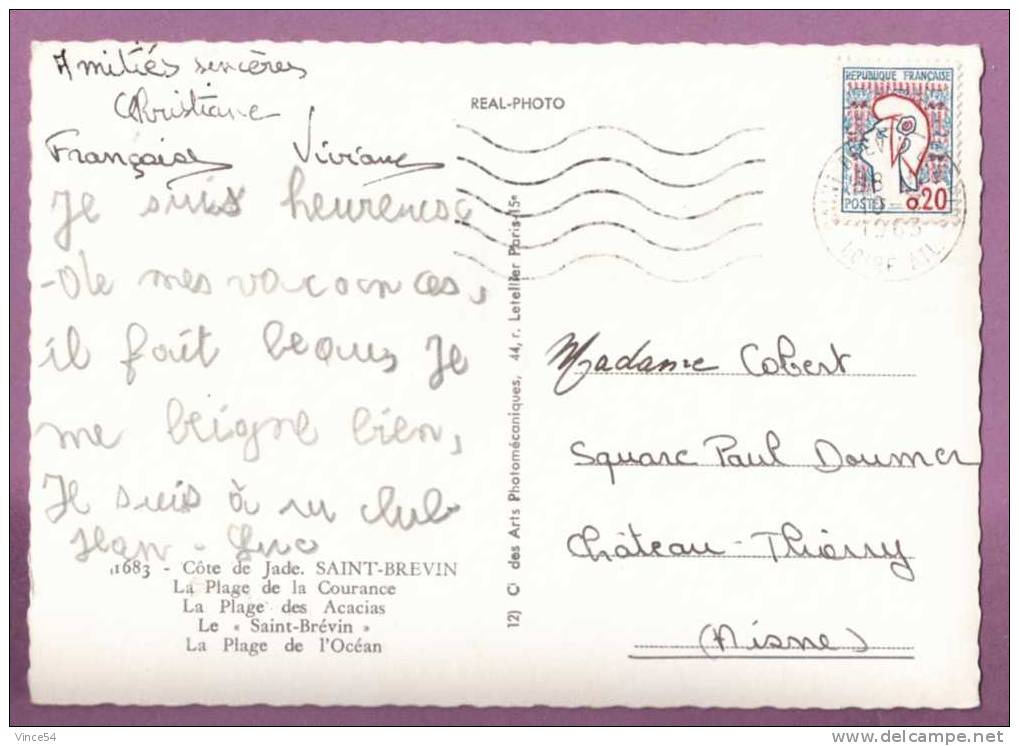 Amitiés sincères
Christiane
Française Viviane
Je suis heureuse
de mes vacances,
il fait beaus Je
me beigne bien,
Je suis à un club
Jean-Luc
1683 - Côte de Jade. SAINT-BREVIN
La Plage de la Courance
La Plage des Acacias
Le « Saint-Brévin »
La Plage de l'Océan
REAL-PHOTO
12) Cⁱ des Arts Photomécaniques, 44, r. Letellier Paris-15ᵉ
REPUBLIQUE FRANÇAISE
POSTES 0.20
18
1963
LOIRE ATL.
Madame Cobert
Square Paul Doumer
Château-Thierry
(Aisne)
Vince54
delcampe.net